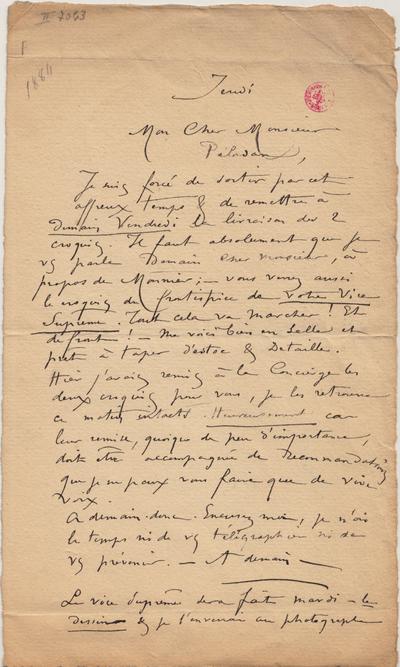 II 7043
1884
Jeudi
Mon Cher Monsieur
Péladan,
Je suis forcé de sortir par cet
affreux temps & de remettre à
Demain Vendredi la livraison des 2
croquis. Il faut absolument que je
vs parle Demain cher monsieur, à
propos de Monnier; — vous verrez aussi
le croquis du frontispice de votre Vice
Suprême. Tout cela va marcher! Et
de front! — Me voici bien en Selle et
prêt à taper d'estoc & Detaille.
Hier j'avais remis à la Concierge les
deux croquis pour vous, je les retrouve
ce matin intacts. Heureusement car
leur remise, quoique de peu d'importance,
doit être accompagnée de Recommandations
que je ne peux vous faire que de vive
voix.
A demain donc. Excusez moi, je n'ai
le temps ni de vs télégraphier ni de
vs prévenir. — A demain —
Le vice suprême sera fait mardi — le
dessin & je l'enverrai au photographe